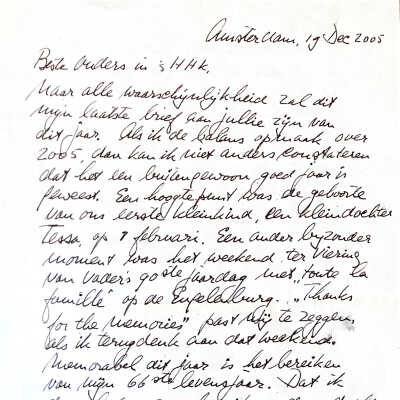 Amsterdam, 19 Dec 2005
Beste Ouders in 's HHK,
Naar alle waarschijnlijkheid zal dit
mijn laatste brief aan jullie zijn van
dit jaar. Als ik de balans opmaak over
2005, dan kan ik niet anders constateren
dat het een buitengewoon goed jaar is
geweest. Een hoogtepunt was de geboorte
van ons eerste kleinkind, een kleindochter
Tessa, op 8 februari. Een ander bijzonder
moment was het weekend ter viering
van Vader's 90ste jaardag met "toute la
famille" op de Engelenburg. "Thanks
for the Memories" past mij te zeggen,
als ik terugdenk aan dat weekend.
Memorabel dit jaar is het bereiken
van mijn 66ste levensjaar. Dat ik